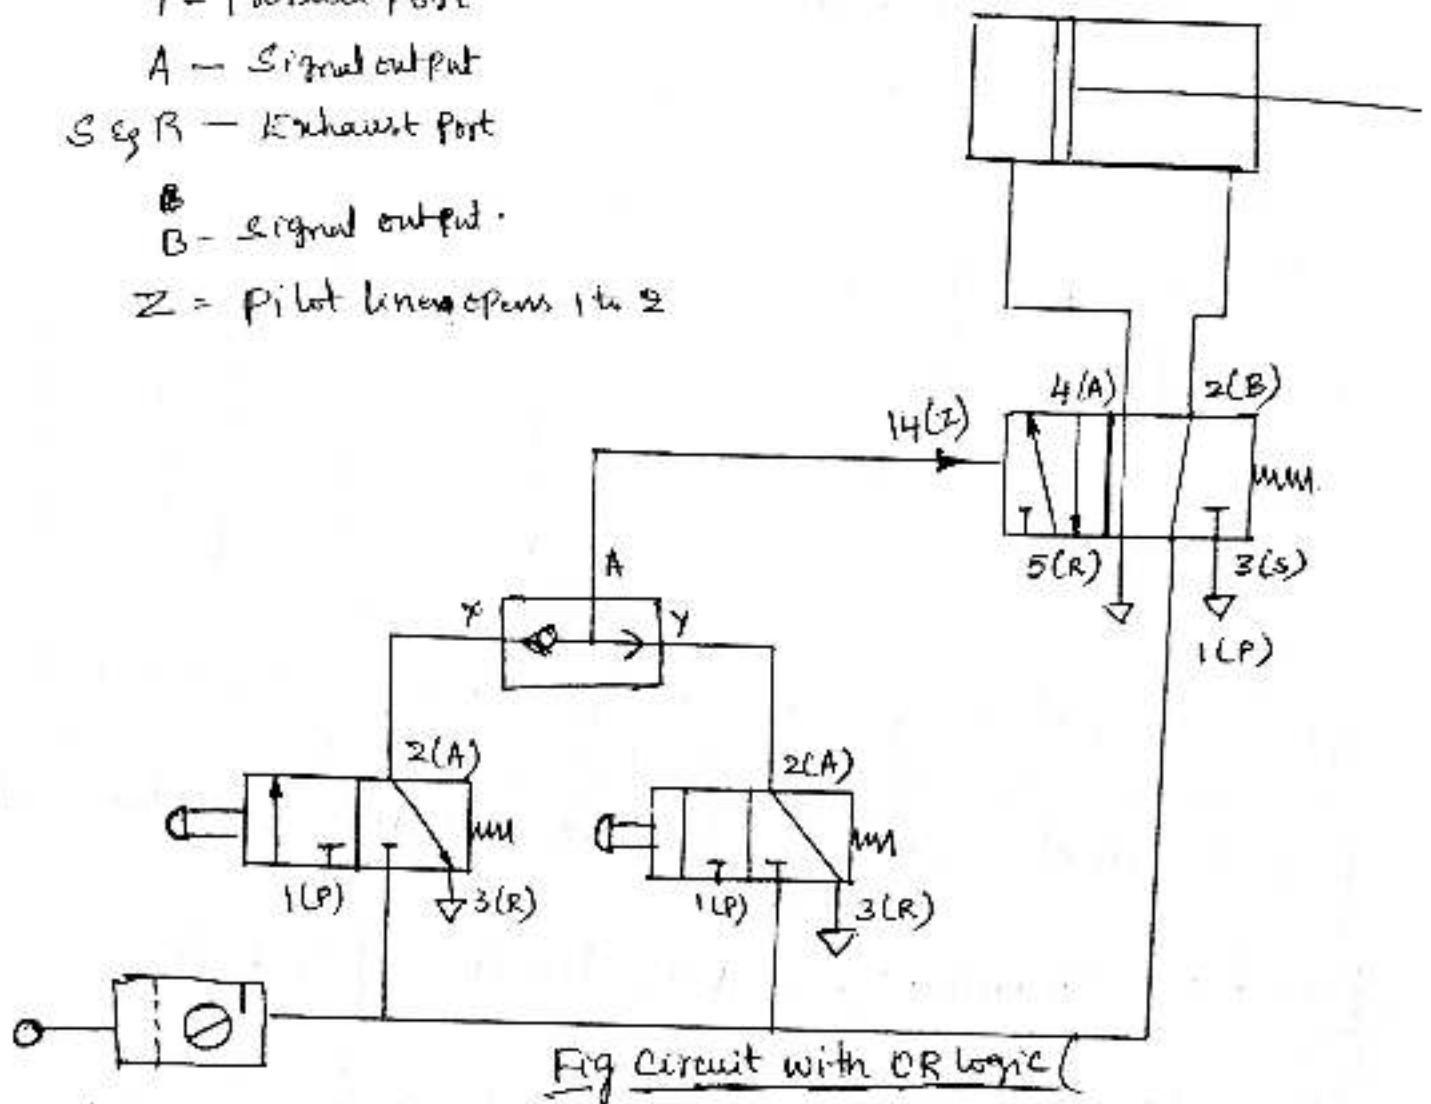 A - Signal output
S & R - Exhaust Port
B - Signal output.
Z = Pilot lines opens 1 to 2
4(A)
2(B)
14(Z)
5(R)
3(S)
1(P)
A
X
Y
2(A)
2(A)
1(P)
3(R)
1(P)
3(R)
Fig Circuit with OR logic